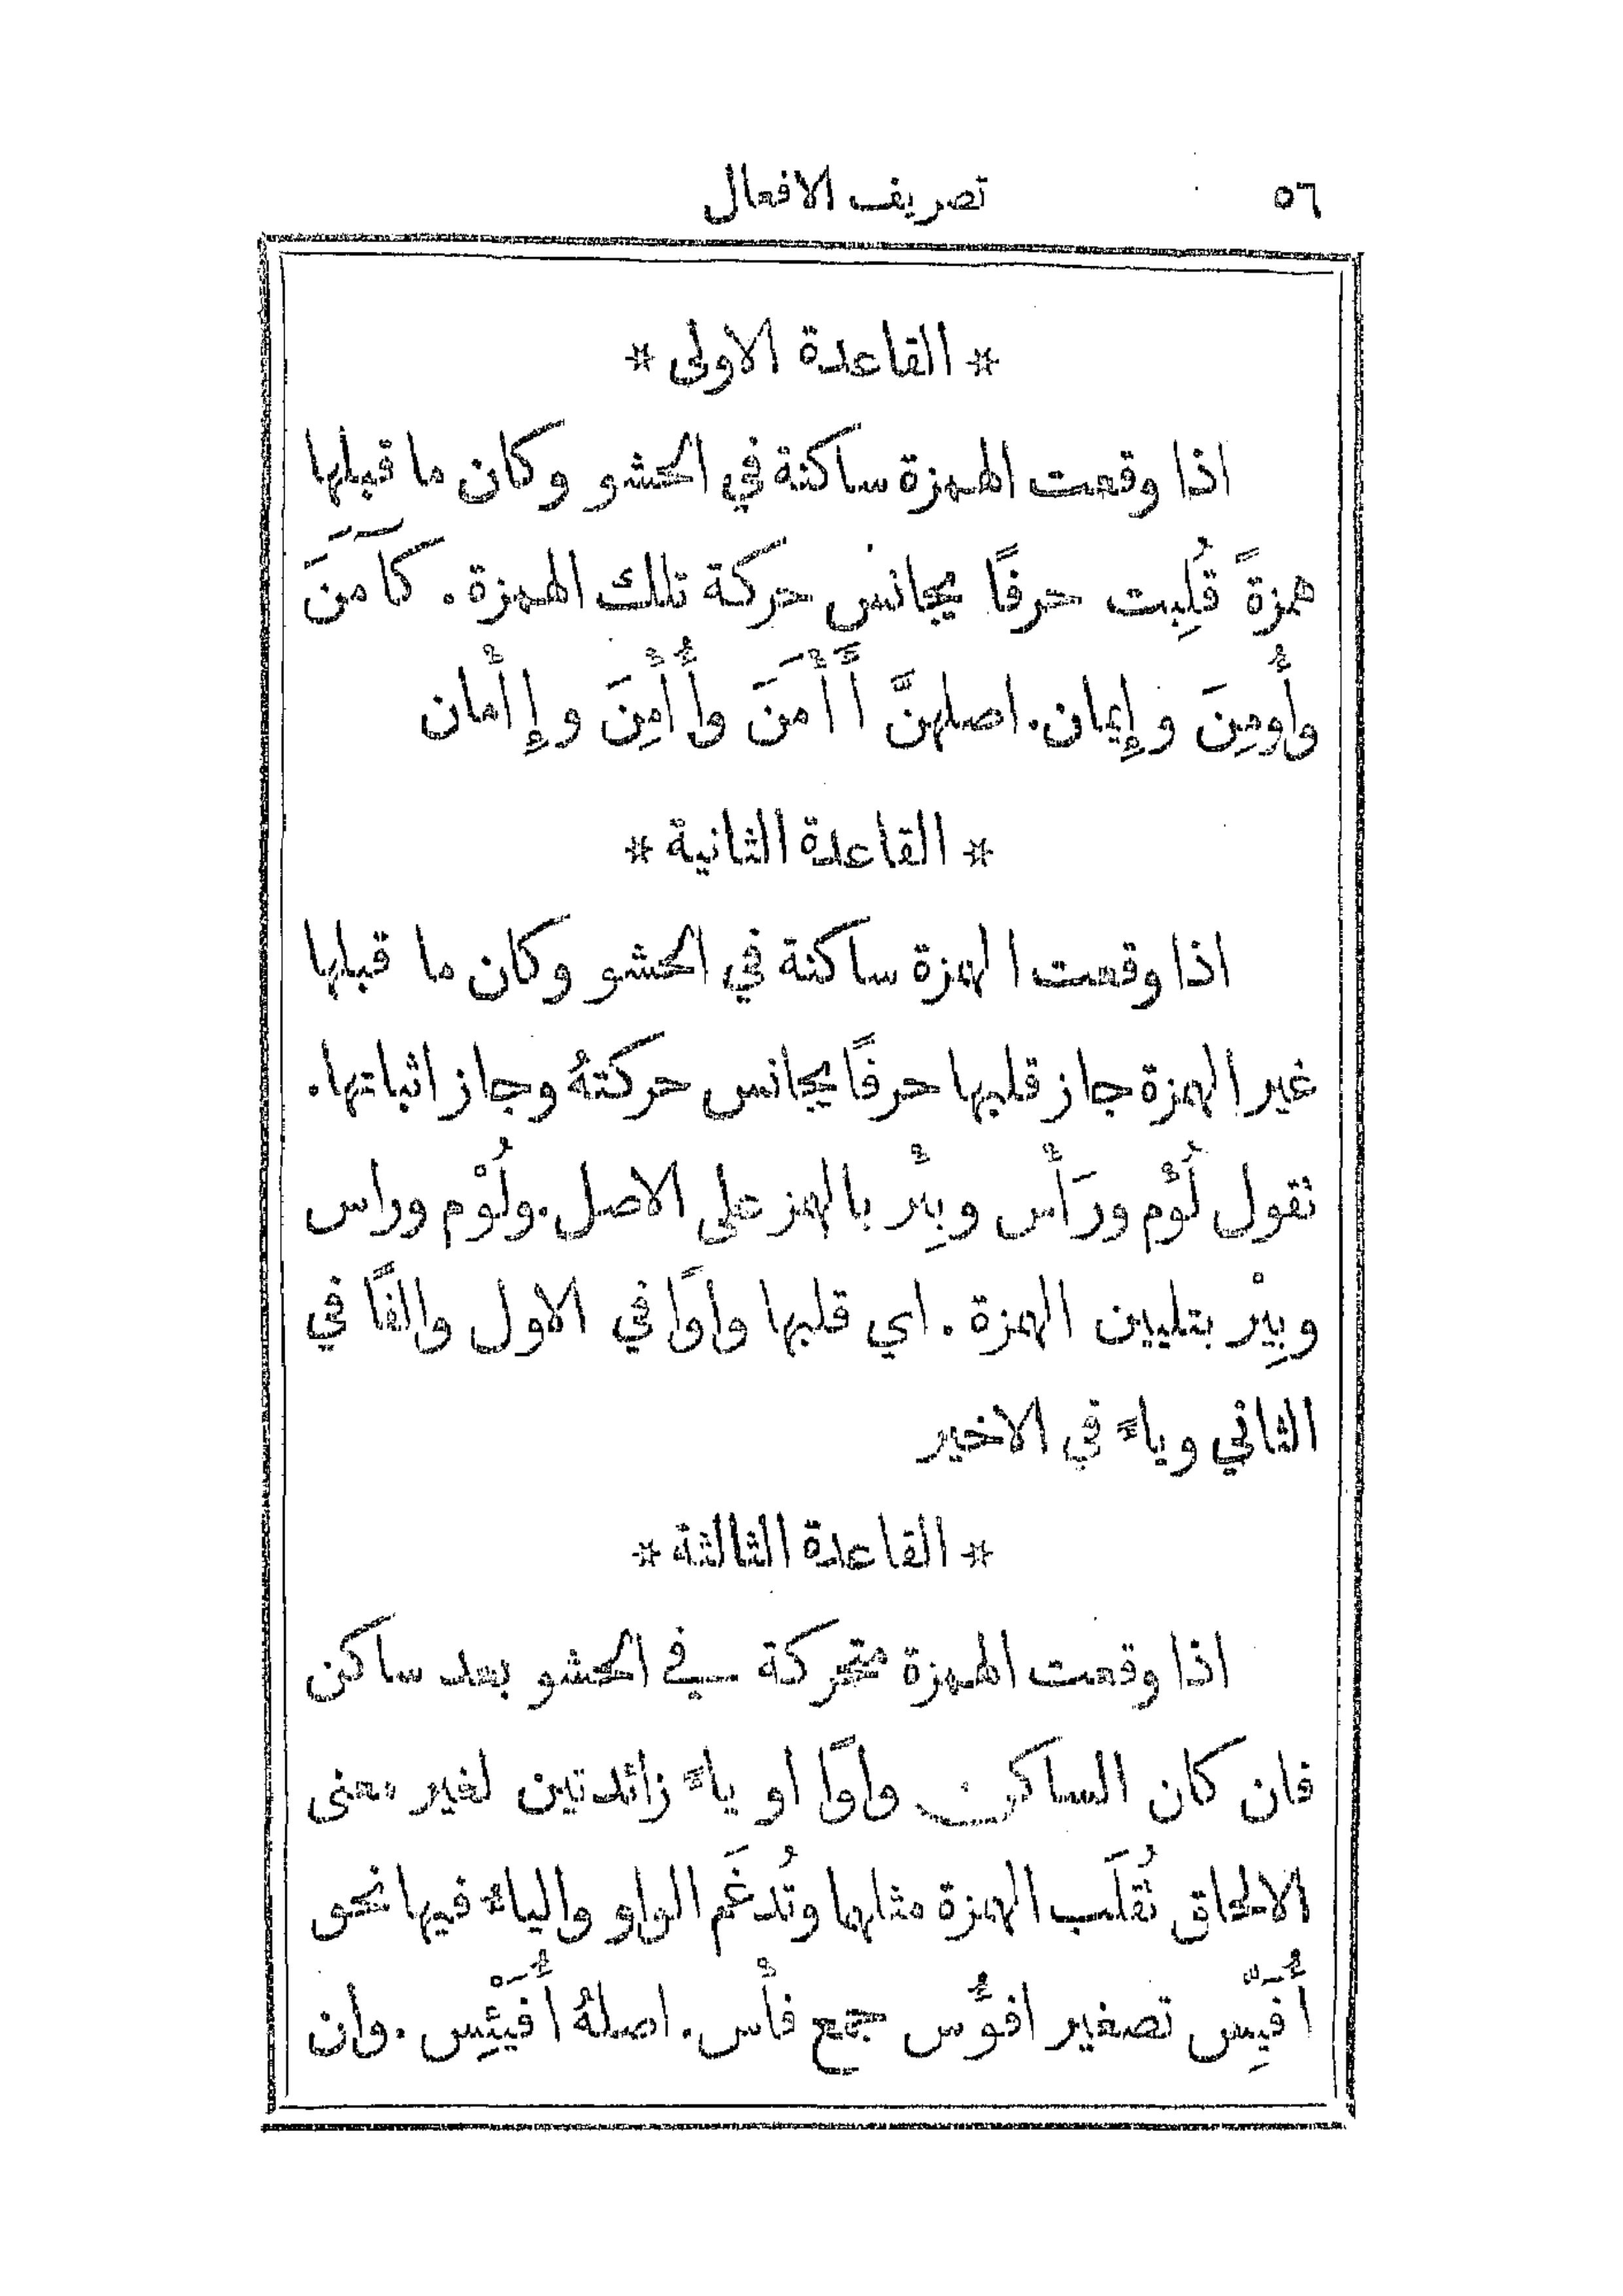 ٥٦ تصريف الافعال
* القاعدة الاولى *
اذا وقعت الهمزة ساكنة في الحشو وكان ما قبلها
همزةً قُلِبت حرفًا يجانس حركة تلك الهمزة. كآمَنَ
وأُومِنَ وإِيمان. اصلهنَّ أَأْمَنَ وأُأْمِنَ وإِأْمان
* القاعدة الثانية *
اذا وقعت الهمزة ساكنة في الحشو وكان ما قبلها
غير الهمزة جاز قلبها حرفًا يجانس حركتهُ وجاز اثباتها.
نقول لُؤْم ورَأْس وبِئْر بالهمز على الاصل. ولُوْم وراس
وبِيْر بتليين الهمزة. اي قلبها واوًا في الاول والفًا في
الثاني وياءً في الاخير
* القاعدة الثالثة *
اذا وقعت الهمزة متحركة في الحشو بعد ساكن
فان كان الساكن واوًا او ياءً زائدتين لغير معنى
الالحاق تُقلَب الهمزة مثلهما وتُدغَم الواو والياءُ فيها نحو
أُفَيِّس تصغير افؤُس جمع فأْس. اصلهُ أُفَيْئِس. وان